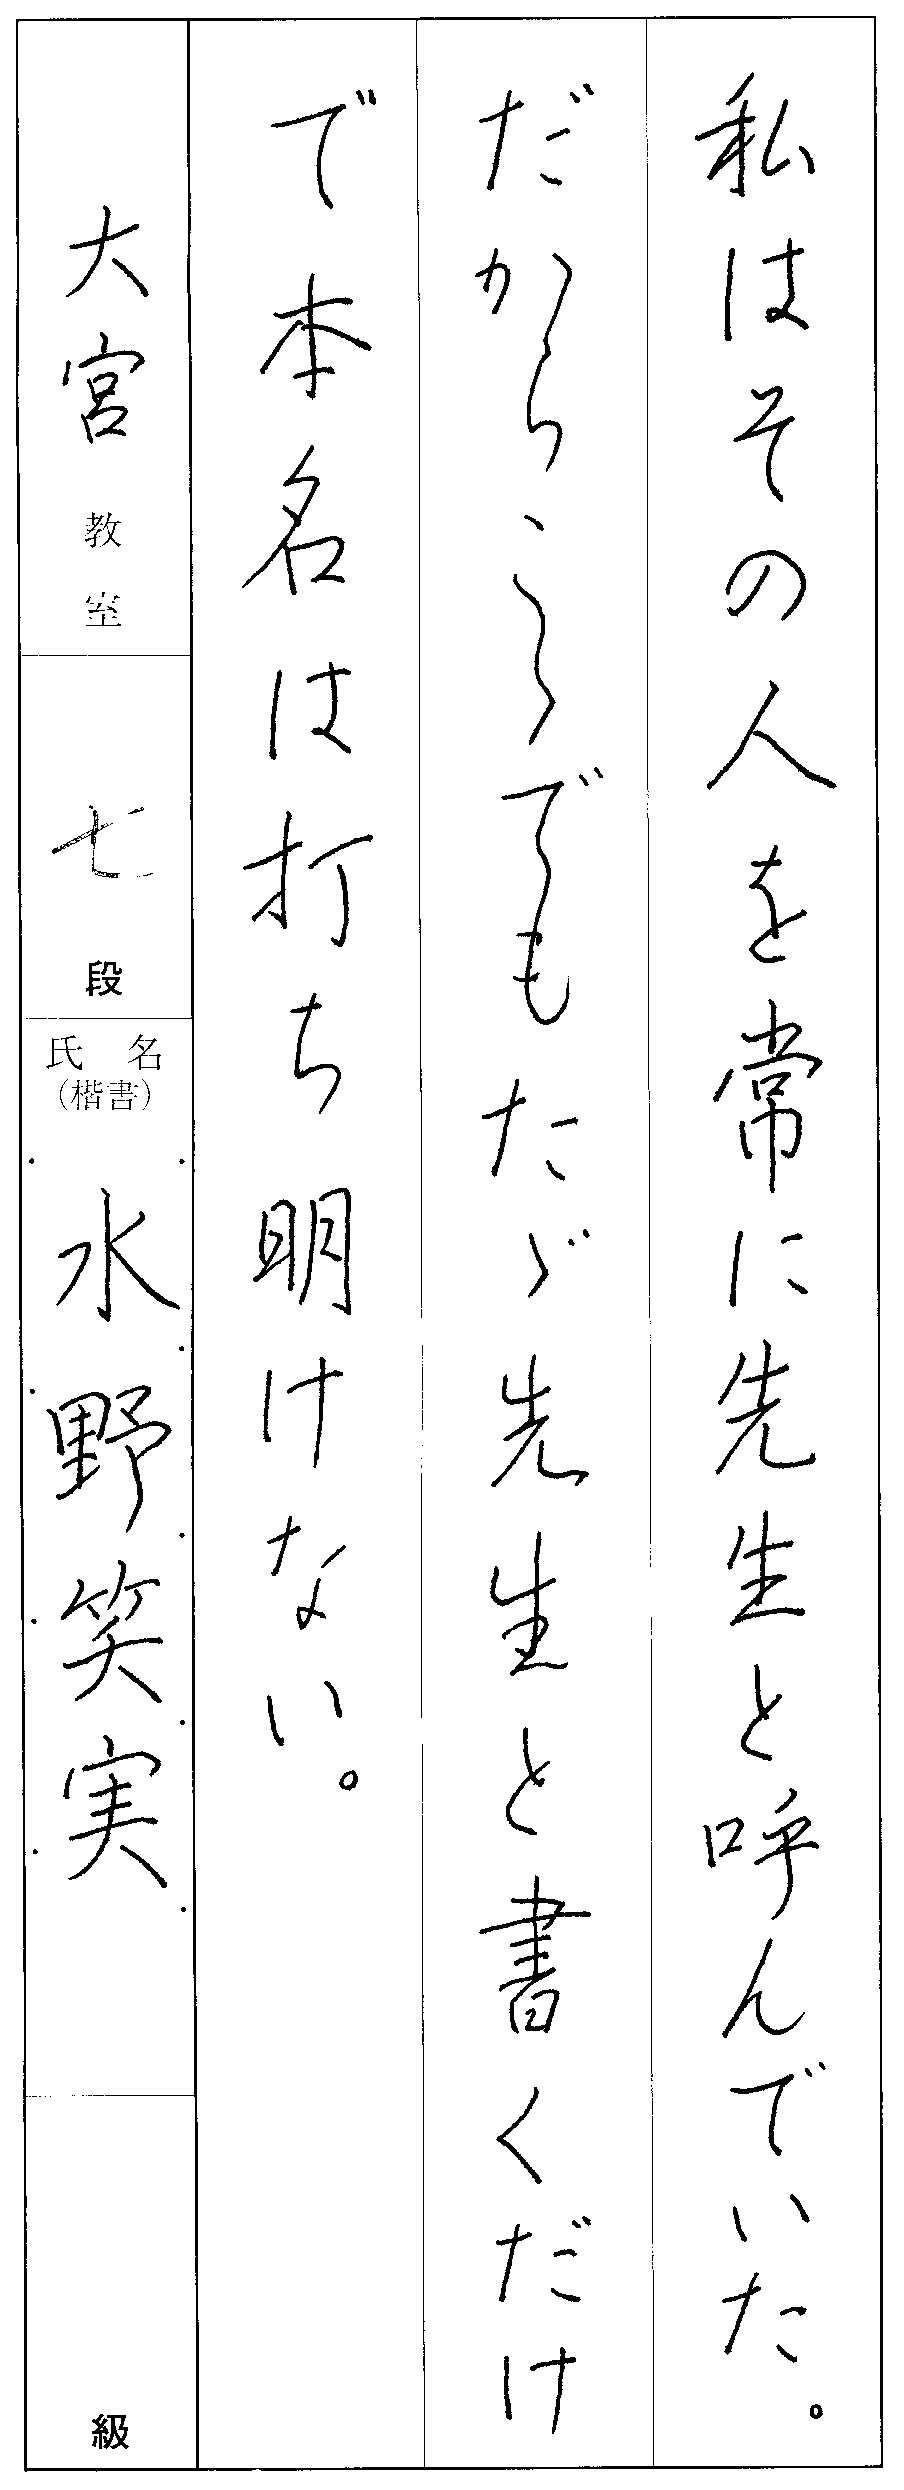 私はその人を常に先生と呼んでいた。
だからこゝでもたゞ先生と書くだけ
で本名は打ち明けない。
大宮教室
七段
氏名
(楷書)
水野笑実
級